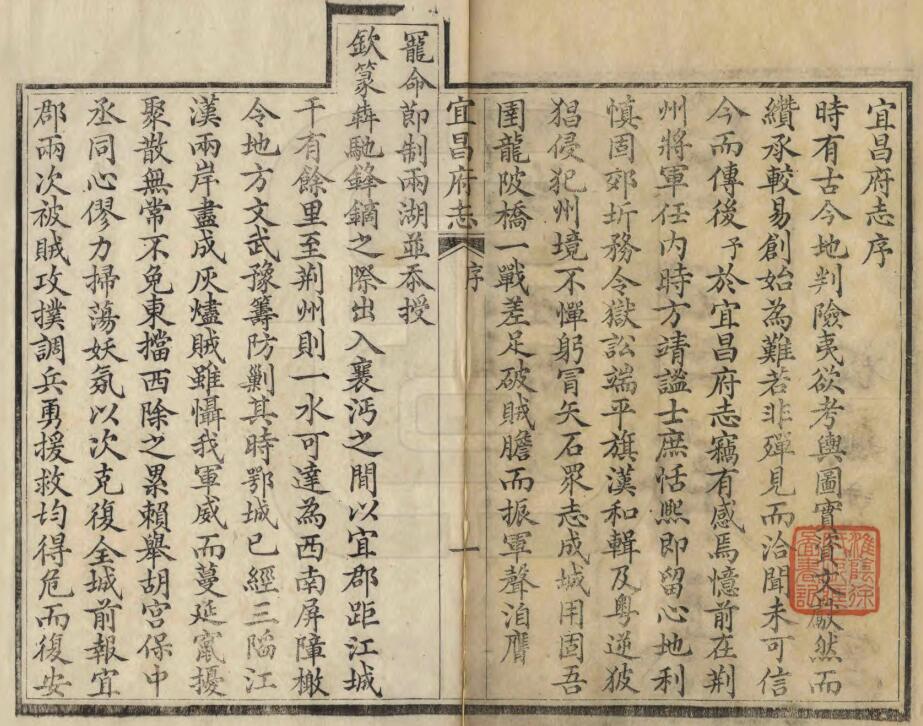 宜昌府志序
時有古今地判險夷欲考輿圖實資文獻然而
纘承較易創始為難若非殫見而洽聞未可信
今而傳後予於宜昌府志竊有感焉憶前在荆
州將軍任內時方靖謐士庶恬熙即留心地利
慎固郊圻務令獄訟端平旗漢和輯及粵逆狓
猖侵犯州境不憚躬冒矢石眾志成城用固吾
圉龍陂橋一戰差足破賊膽而振軍聲洎膺
宜昌府志
序
一
寵命節制兩湖並忝授
欽篆犇馳鋒鏑之際出入襄沔之間以宜郡距江城
千有餘里至荆州則一水可達為西南屏障檄
令地方文武豫籌防剿其時鄂城已經三陷江
漢兩岸盡成灰燼賊雖懾我軍威而蔓延竄擾
聚散無常不免東擋西除之累賴舉胡宮保中
丞同心僇力掃蕩妖氛以次克復全城前報宜
郡兩次被賊攻撲調兵勇援救均得危而復安